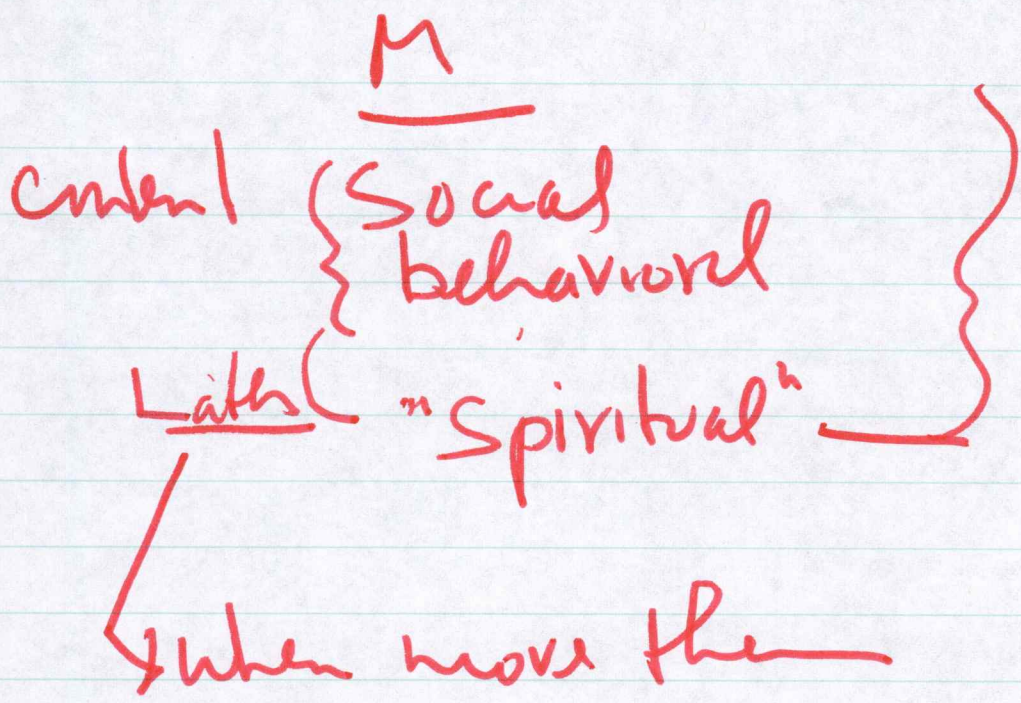 M
content Social
behavioral
Laths "Spiritual"
when move them